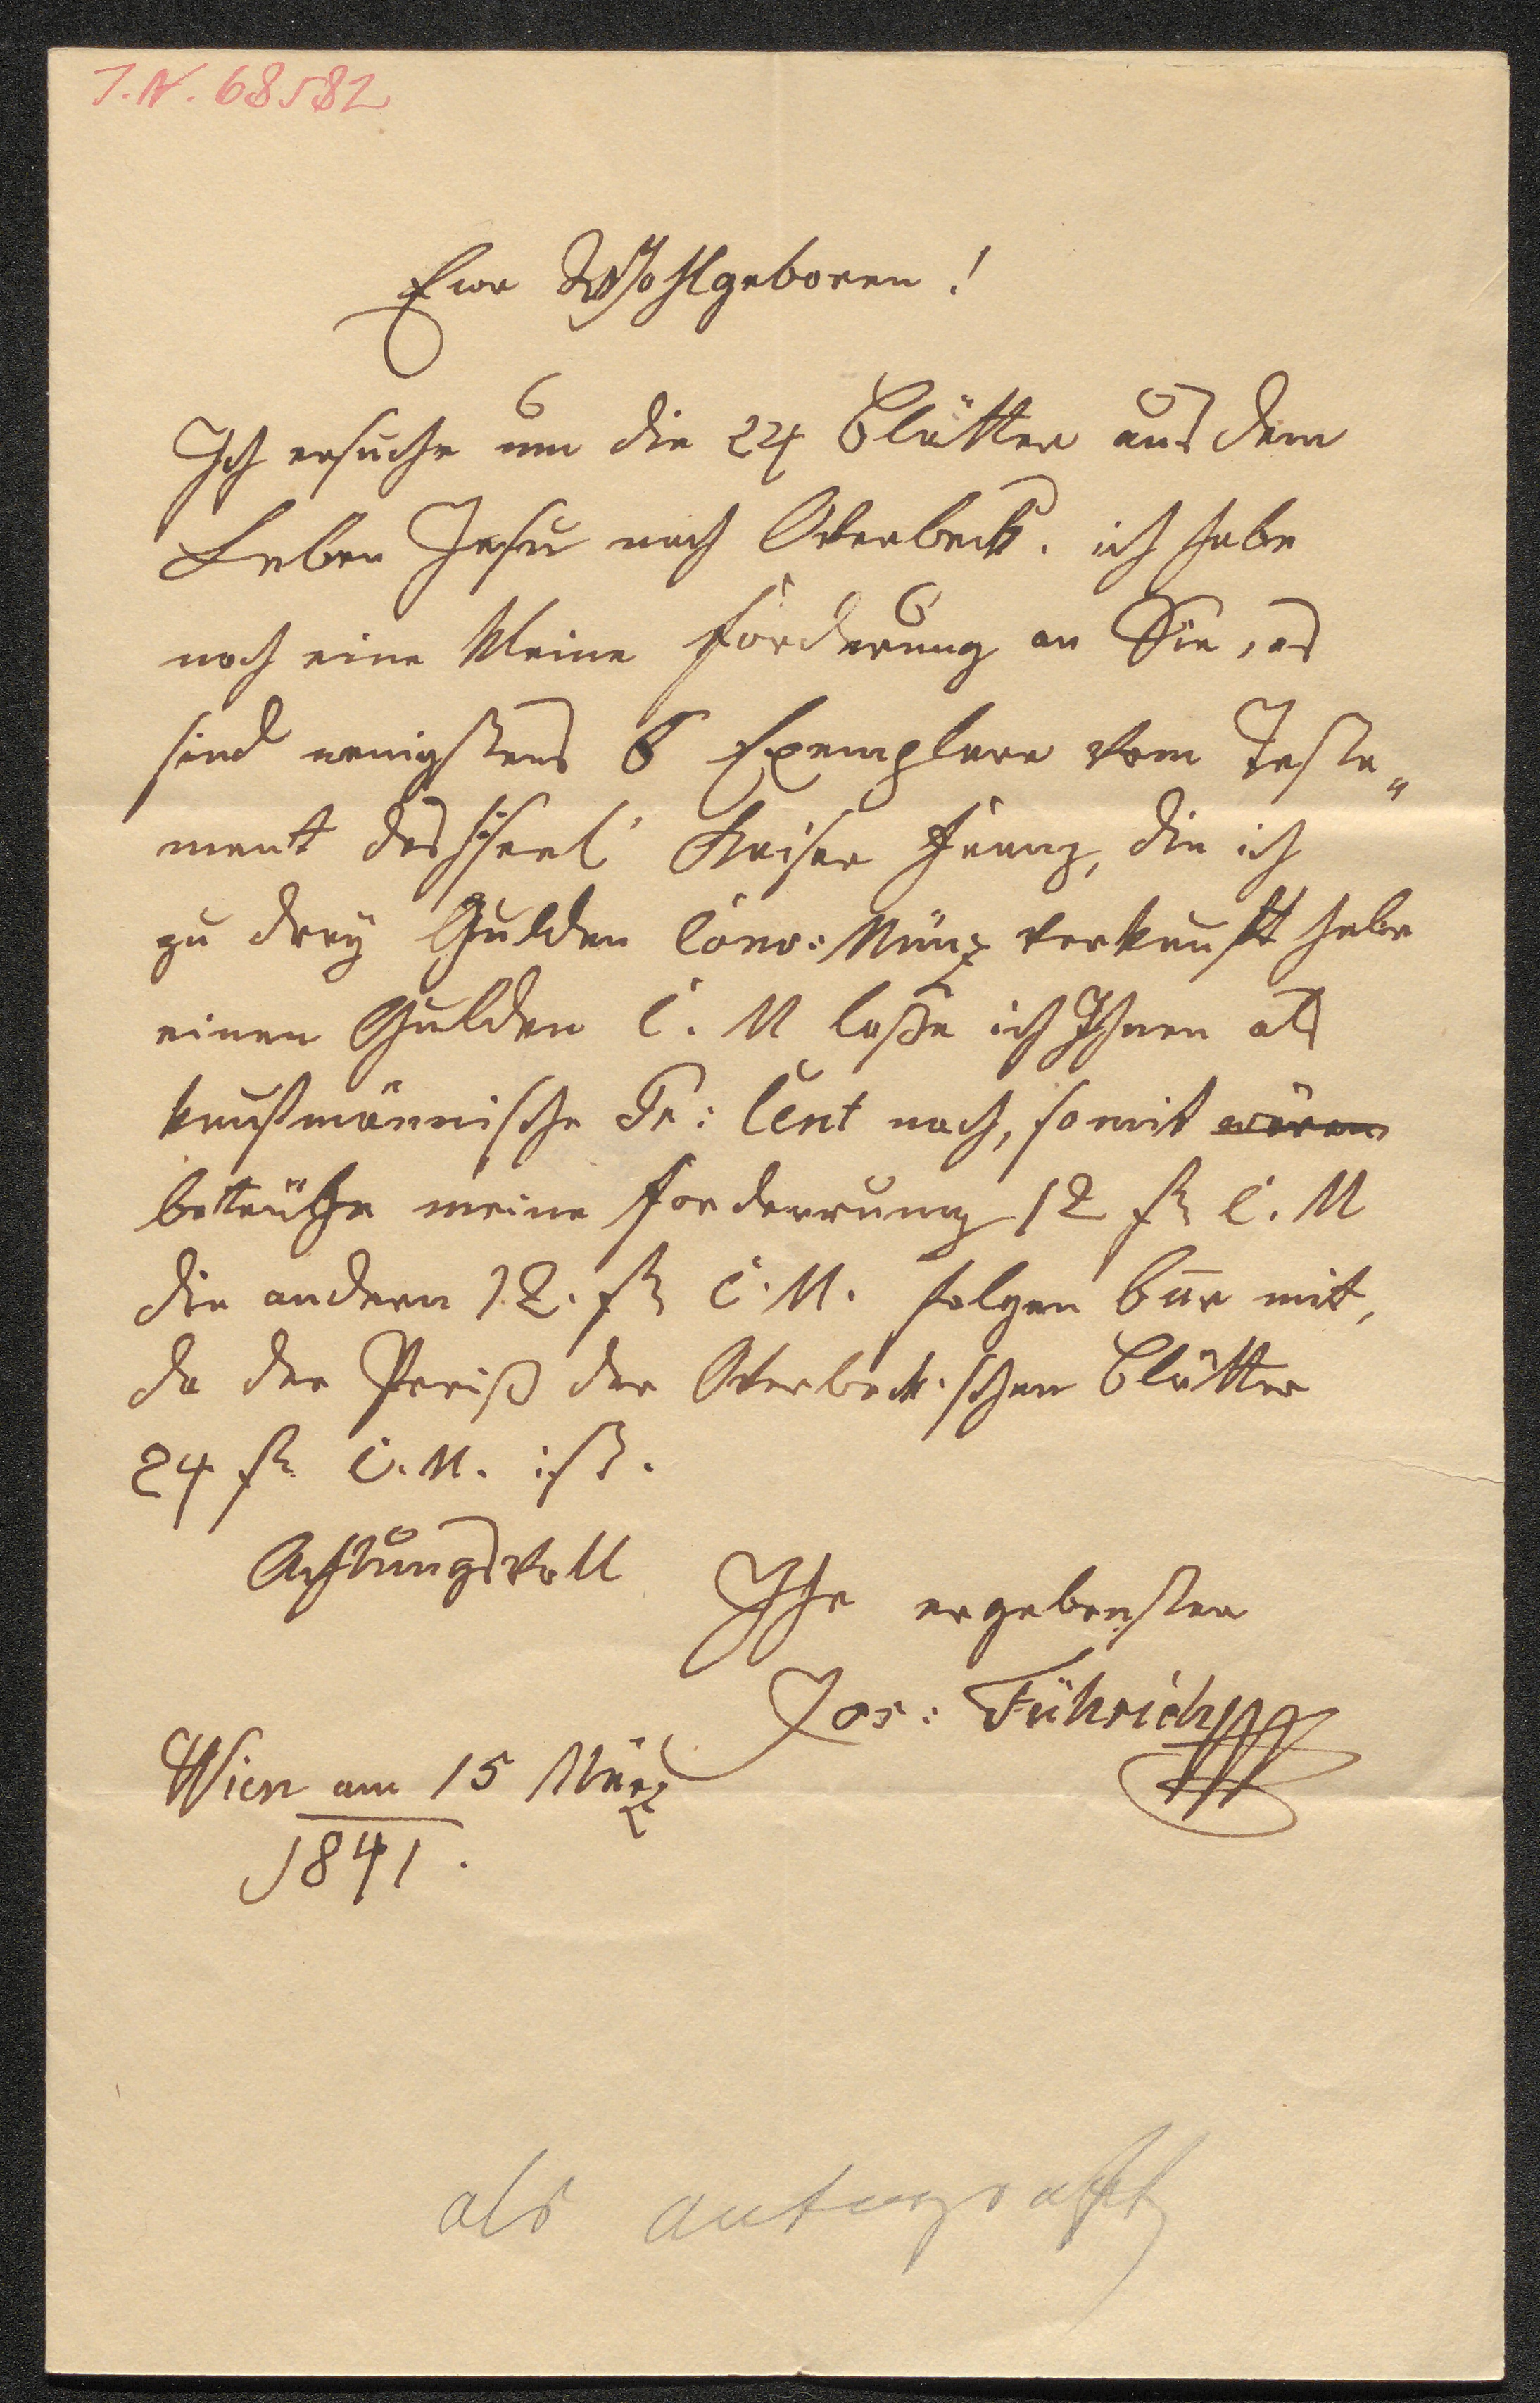 I.N. 68582
Euer Wohlgeboren!
Ich ersuche um die 24 Blätter aus dem
Leben Jesu nach Overbeck. ich habe
noch eine kleine Forderung an Sie, es
sind wenigstens 6 Exemplare vom Testa„
ment des seel Kaiser Franz, die ich
zu drey Gulden Conv: Münz verkauft habe
einen Gulden C. M laße ich Ihnen als
kaufmännische Pr: Cent nach, somit wären
betrüge meine Forderrung 12 fl C. M
die andern 12. fl C. M. folgen bar mit,
da der Preiß der Overbeck.schen Blätter
24 fl. C. M. ist.
Achtungsvoll
Ihr ergebenster
Jos: Führich
Wien am 15 März
1841.
als Autograph